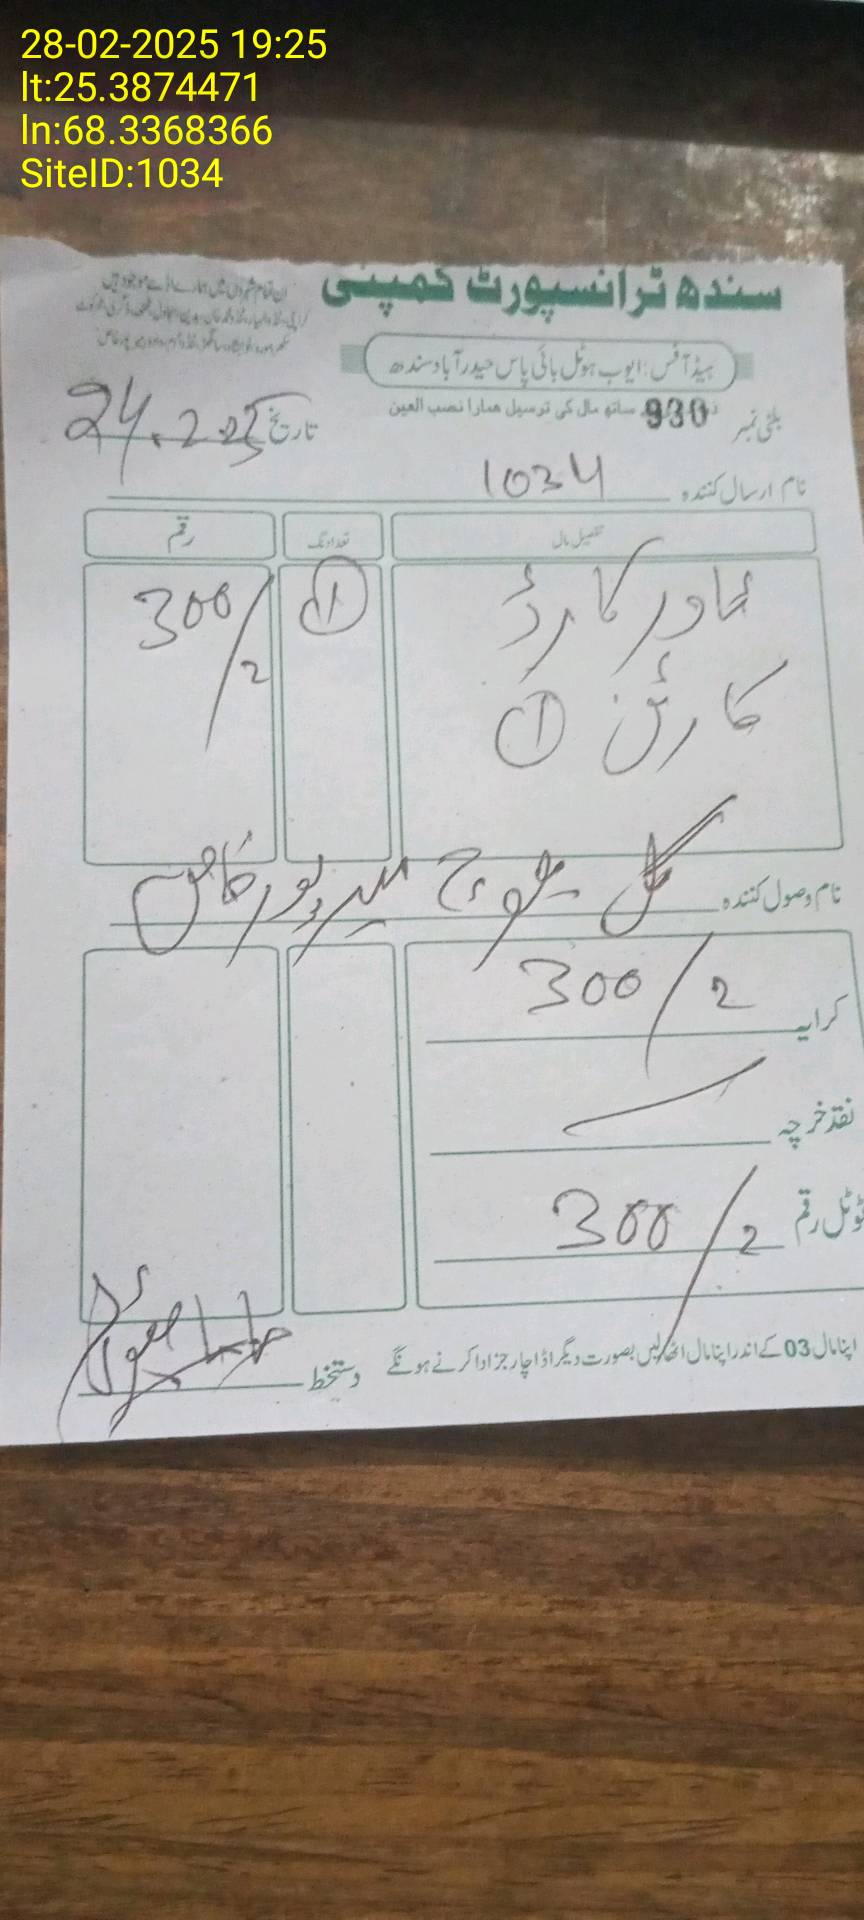 28-02-2025 19:25
lt:25.3874471
ln:68.3368366
SiteID:1034
سندھ ٹرانسپورٹ کمپنی
ہیڈ آفس: ایوب ہوٹل بائی پاس حیدرآباد سندھ
ساتھ مال کی ترسیل ھمارا نصب العین
بلٹی نمبر 930
تاریخ 24.2.25
نام ارسال کنندہ 1034
تفصیل مال تعداد نگ رقم
پاور کارڈ 1 300/2
کارٹن 1
نام وصول کنندہ گل میرپور خاص
کرایہ 300/2
نقد خرچہ
ٹوٹل رقم 300/2
اپنا مال 03 کے اندر اپنا مال اٹھالیں بصورت دیگر اڈا چارجز ادا کرنے ہونگے
دستخط